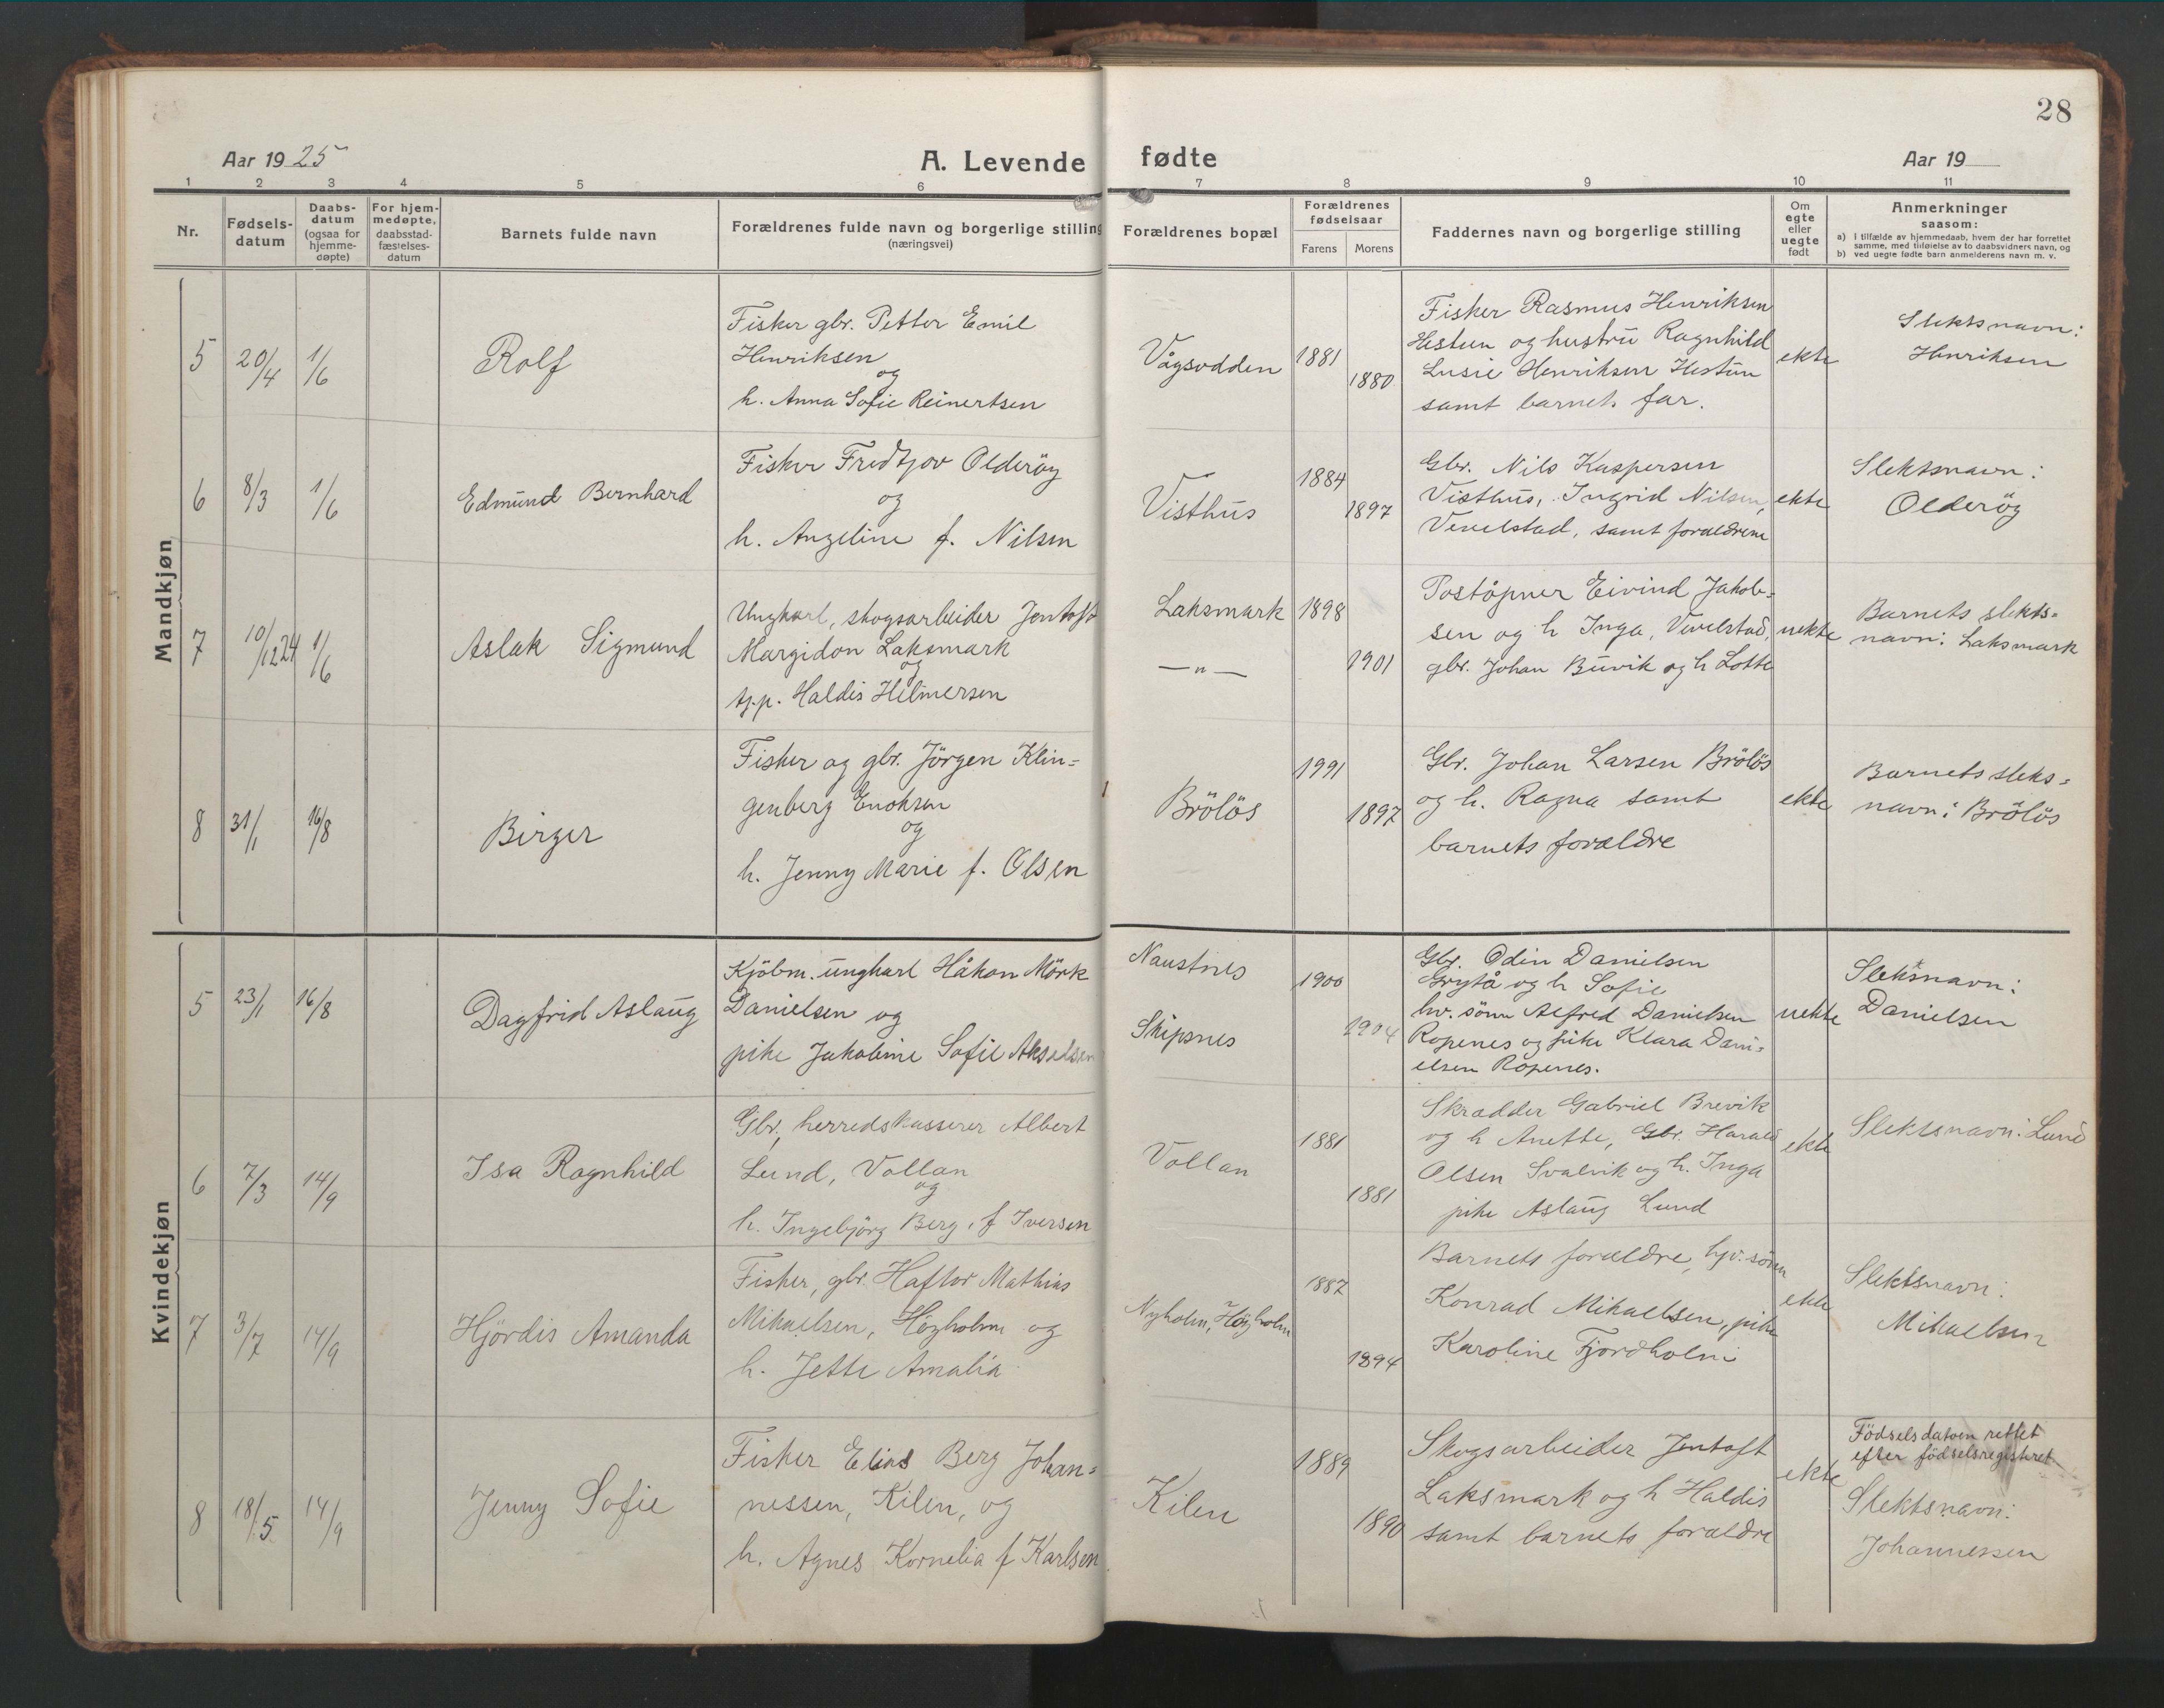 28
Aar 1925
A. Levende fødte
Aar 19
1 2 3 4 5 6 7 8 9 10 11
Nr.
Fødsels-
datum
Daabs-
datum
(ogsaa for
hjemme-
døpte)
For hjem-
medøpte,
daabsstad-
fæstelses-
datum
Barnets fulde navn
Forældrenes fulde navn og borgerlige stilling
(næringsvei)
Forældrenes bopæl
Forældrenes
fødselsaar
Farens Morens
Faddernes navn og borgerlige stilling
Om
egte
eller
uegte
født
Anmerkninger
saasom:
a) I tilfælde av hjemmedaab, hvem der har forrettet
samme, med tilføielse av to daabsvidners navn, og
b) ved uegte fødte barn anmelderens navn m. v.
Mandkjøn
5 20/4 1/6
Rolf
Fisker gbr. Petter Emil
Henriksen
og
h. Anna Sofie Reinertsen
Vågsodden
1881
1880
Fisker Rasmus Henriksen
Hestun og hustru Ragnhild
Lusie Henriksen Hestun
samt barnets far.
ekte
Slektsnavn:
Henriksen
6 8/3 1/6
Edmund Bernhard
Fisker Fredtjov Olderöy
og
h. Angeline f. Nilsen
Visthus
1884
1897
Gbr. Nils Kaspersen
Visthus, Ingrid Nilsen,
Vevelstad, samt forældrene
ekte
Slektsnavn:
Olderöy
7 10/12 24 1/6
Aslak Sigmund
Ungkarl, skogsarbeider Jentoft
Margidon Laksmark
og
tj.p. Haldis Hilmersen
Laksmark
— " —
1898
1901
Poståpner Eivind Jakob-
sen og h Inga, Vevelstad,
gbr. Johan Buvik og h Lotte
uekte
Barnets slekts-
navn: Laksmark
8 31/1 16/8
Birger
Fisker og gbr. Jörgen Klin-
genberg Enoksen
og
h. Jenny Marie f. Olsen
Brölös
1991
1897
Gbr. Johan Larsen Brölös
og h. Ragna samt
barnets forældre
ekte
Barnets sleks-
navn: Brölös
Kvindekjøn
5 23/1 16/8
Dagfrid Aslaug
Kjöbm. ungkarl Håkon Mörk
Danielsen og
pike Jakobine Sofie Akselsen
Naustnes
Skipsnes
1900
1904
Gbr. Odin Danielsen
Grytå og h Sofie
hv. sönn Alfred Danielsen
Ropenes og pike Klara Dani-
elsen Ropenes.
uekte
Slektsnavn:
Danielsen
6 7/3 14/9
Isa Ragnhild
Gbr, herredskasserer Albert
Lund, Vollan
og
h. Ingebjörg Berg, f Iversen
Vollan
1881
1881
Skrædder Gabriel Brevik
og h Anette, Gbr. Harald
Olsen Svalvik og h. Inga
pike Aslaug Lund
ekte
Slektsnavn: Lund
7 3/7 14/9
Hjördis Amanda
Fisker, gbr. Haftor Mathias
Mikaelsen, Högholm og
h. Jette Amalia
Nyholm, Högholm
1887
1894
Barnets forældre, hjv. sönn
Konrad Mikaelsen, pike
Karoline Fjordholm
ekte
Slektsnavn:
Mikaelsen
8 18/5 14/9
Jenny Sofie
Fisker Elias Berg Johan-
nessen, Kilen, og
h. Agnes Kornelia f Karlsen
Kilen
1889
1890
Skogsarbeider Jentoft
Laksmark og h Haldis
samt barnets forældre
ekte
Födselsdatoen rettet
efter födselsregisteret
Slektsnavn:
Johannessen